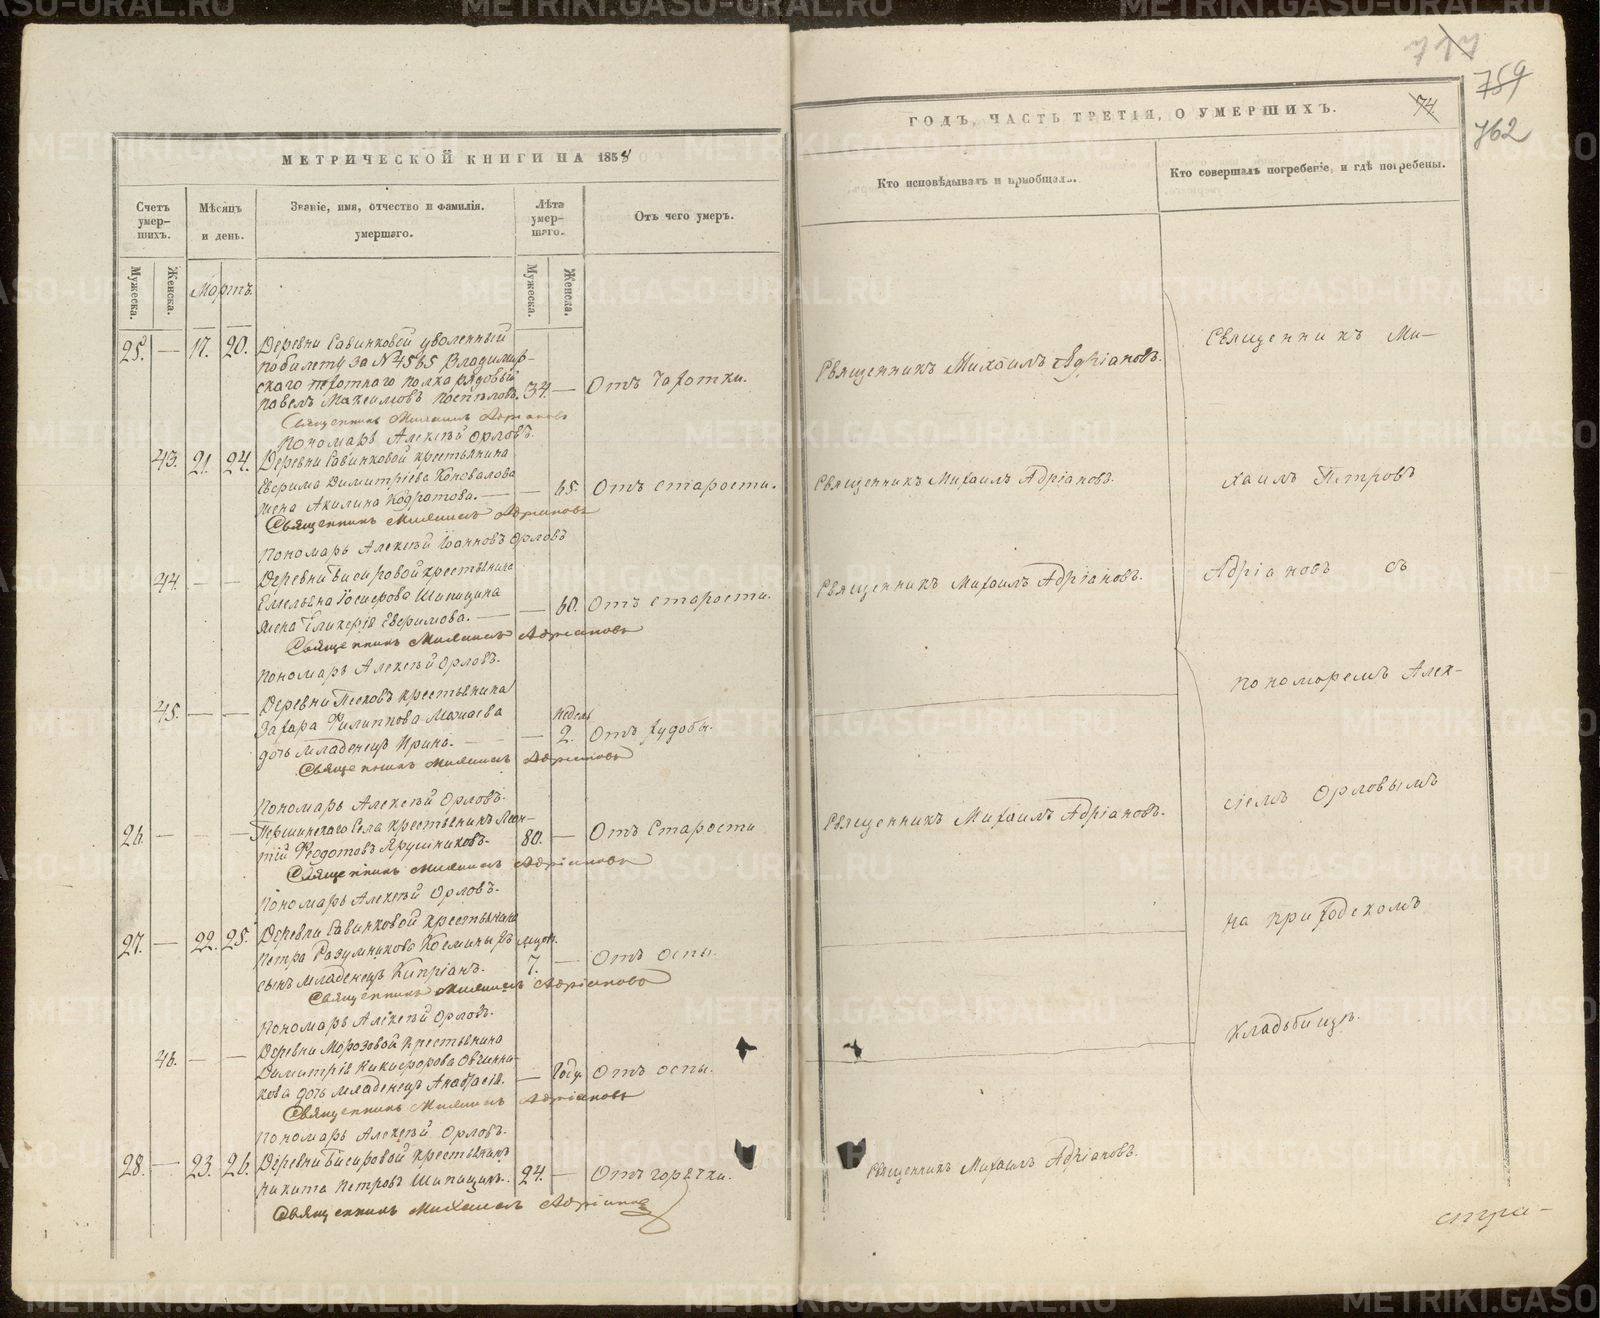 МЕТРИЧЕСКОЙ КНИГИ НА 1854
Счетъ умерших.
Мѣсяцъ и день.
Званіе, имя, отчество и фамилія умершаго.
Лѣта умершаго.
Отъ чего умеръ.
Мужеска.
Женска.
Мартъ.
Мужеска.
Женска.
25. — 17. 20. Деревни Савинковой уволенный
по билету за № 4565 Владимир-
скаго пехотнаго полка рядовый
Павелъ Максимовъ Поспѣловъ. 34. — Отъ чахотки.
Священникъ Михаилъ Адріановъ
Пономарь Алексѣй Орловъ.
43. 21. 24. Деревни Савинковой крестьянина
Ефима Димитріева Коновалова
жена Акилина Кодратова. — — 65. Отъ старости.
Священникъ Михаилъ Адріановъ
Пономарь Алексѣй Іоанновъ Орловъ
44. — — Деревни крестьянина
Емельяна Шипицина
жена Гликерія Евфимова. — — 60. Отъ старости.
Священникъ Михаилъ Адріановъ
Пономарь Алексѣй Орловъ.
45. — — Деревни Песковъ крестьянина
Захара Филиппова Мамаева недель
дочь младенецъ Ирина. — — 2. Отъ худобы.
Священникъ Михаилъ Адріановъ
Пономарь Алексѣй Орловъ.
26. — — — Першинскаго села крестьянинъ Леон-
тій Феодотовъ Ярушниковъ. 80. — Отъ Старости
Священникъ Михаилъ Адріановъ
Пономарь Алексѣй Орловъ.
27. — 22. 25. Деревни Савинковой крестьянина
Петра Разумникова Космины
сынъ младенецъ Кипріанъ. 7. — Отъ оспы.
Священникъ Михаилъ Адріановъ
Пономарь Алексѣй Орловъ.
46. — — Деревни Морозовой крестьянина
Димитрія Никифорова Овчинни-
кова дочь младенецъ Анастасія. — Году. Отъ оспы.
Священникъ Михаилъ Адріановъ
Пономарь Алексѣй Орловъ.
28. — 23. 26. Деревни крестьянинъ
Никита Петровъ Шипицинъ. 24. — Отъ горячки.
Священникъ Михаилъ Адріановъ
717
759
74
762
ГОДЪ, ЧАСТЬ ТРЕТІЯ, О УМЕРШИХЪ.
Кто исповѣдывалъ и пріобщалъ.
Кто совершалъ погребеніе, и гдѣ погребены.
Священникъ Михаилъ Адріановъ.
Священникъ Михаилъ Адріановъ.
Священникъ Михаилъ Адріановъ.
Священникъ Михаилъ Адріановъ.
Священникъ Михаилъ Адріановъ.
Священникъ Ми-
хаилъ Петровъ
Адріановъ съ
пономаремъ Алек-
сіемъ Орловымъ
на приходскомъ
кладьбищѣ.
METRIKI.GASO-URAL.RU